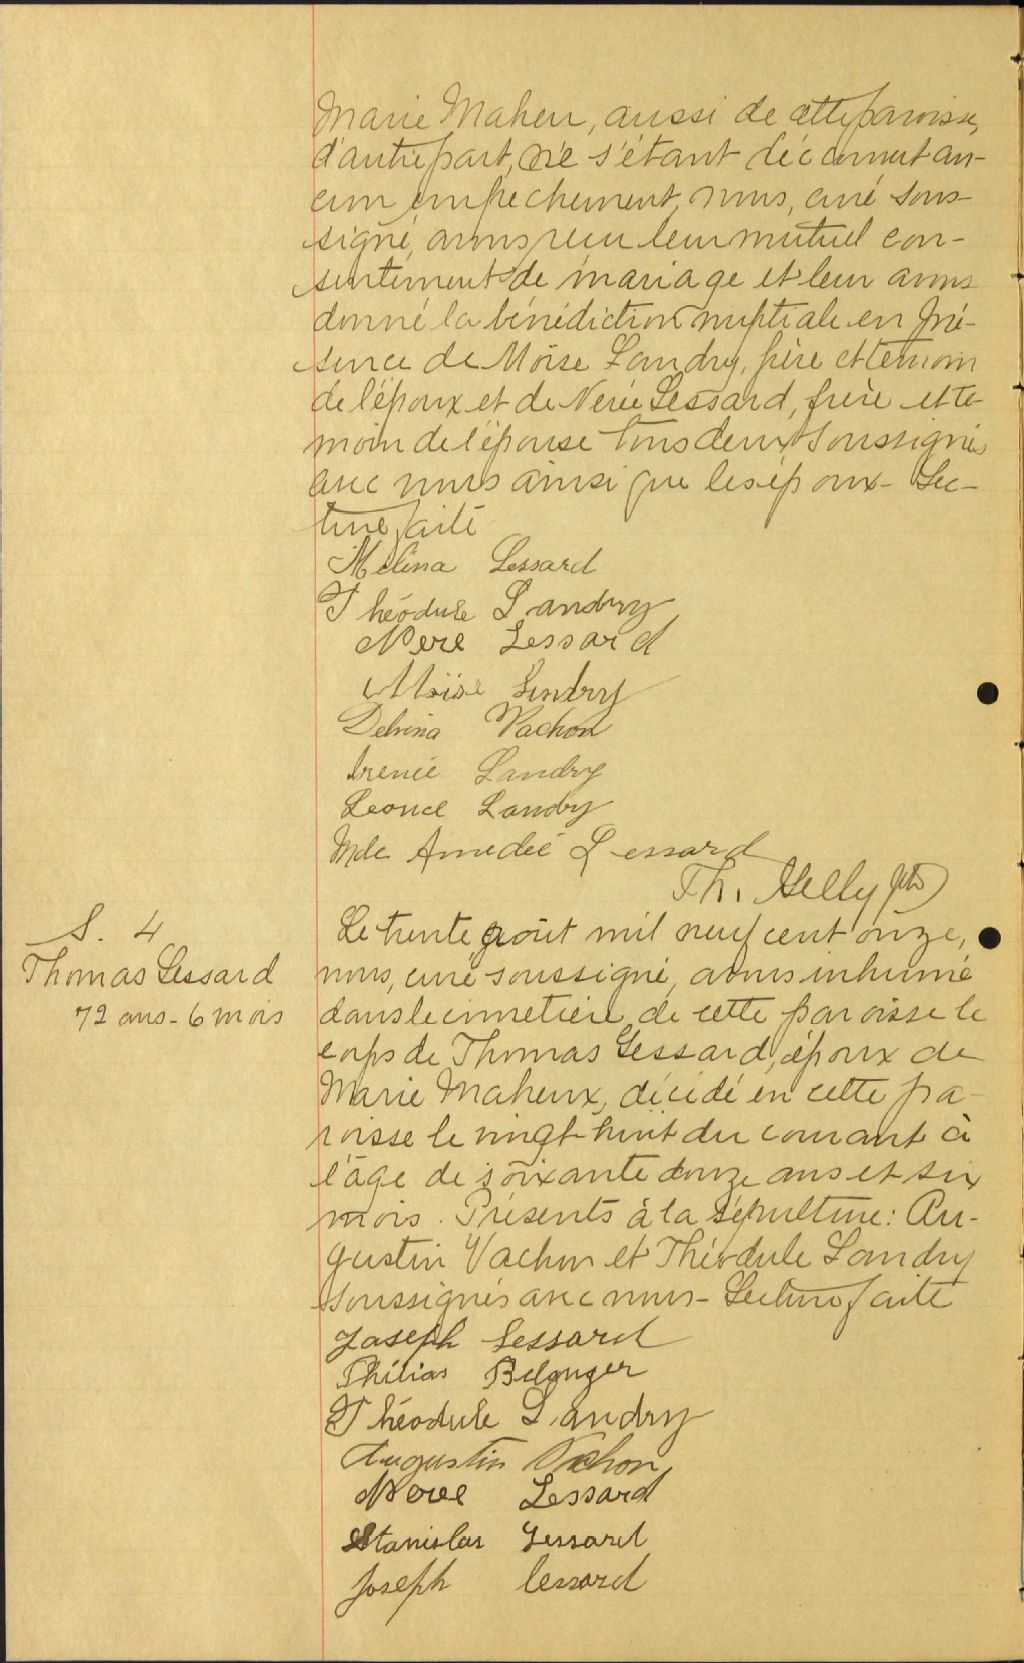 Marie Maheu, aussi de cette paroisse,
d'autre part, ne s'étant découvert au-
cun empêchement, nous, curé sous-
signé, avons reçu leur mutuel con-
sentement de mariage et leur avons
donné la bénédiction nuptiale en pré-
sence de Moïse Landry, père et témoin
de l'époux et de Nérée Lessard, frère et té-
moin de l'épouse tous deux soussignés
avec nous ainsi que les époux - Lec-
ture faite
Mélina Lessard
Théodule Landry
Nere Lessard
Moïse Landry
Delvina Vachon
Irenée Landry
Leonce Landry
Mde Amedée Lessard
Th. ptre
S. 4
Thomas Lessard
72 ans - 6 mois
Le trente août mil neuf cent onze,
nous, curé soussigné, avons inhumé
dans le cimetière de cette paroisse le
corps de Thomas Lessard, époux de
Marie Maheux, décédé en cette pa-
roisse le vingt-huit du courant à
l'âge de soixante douze ans et six
mois. Présents à la sépulture: Au-
gustin Vachon et Théodule Landry
soussignés avec nous - Lecture faite
Joseph Lessard
Philias Belanger
Théodule Landry
Augustin Vachon
Nere Lessard
Stanislas Lessard
Joseph Lessard